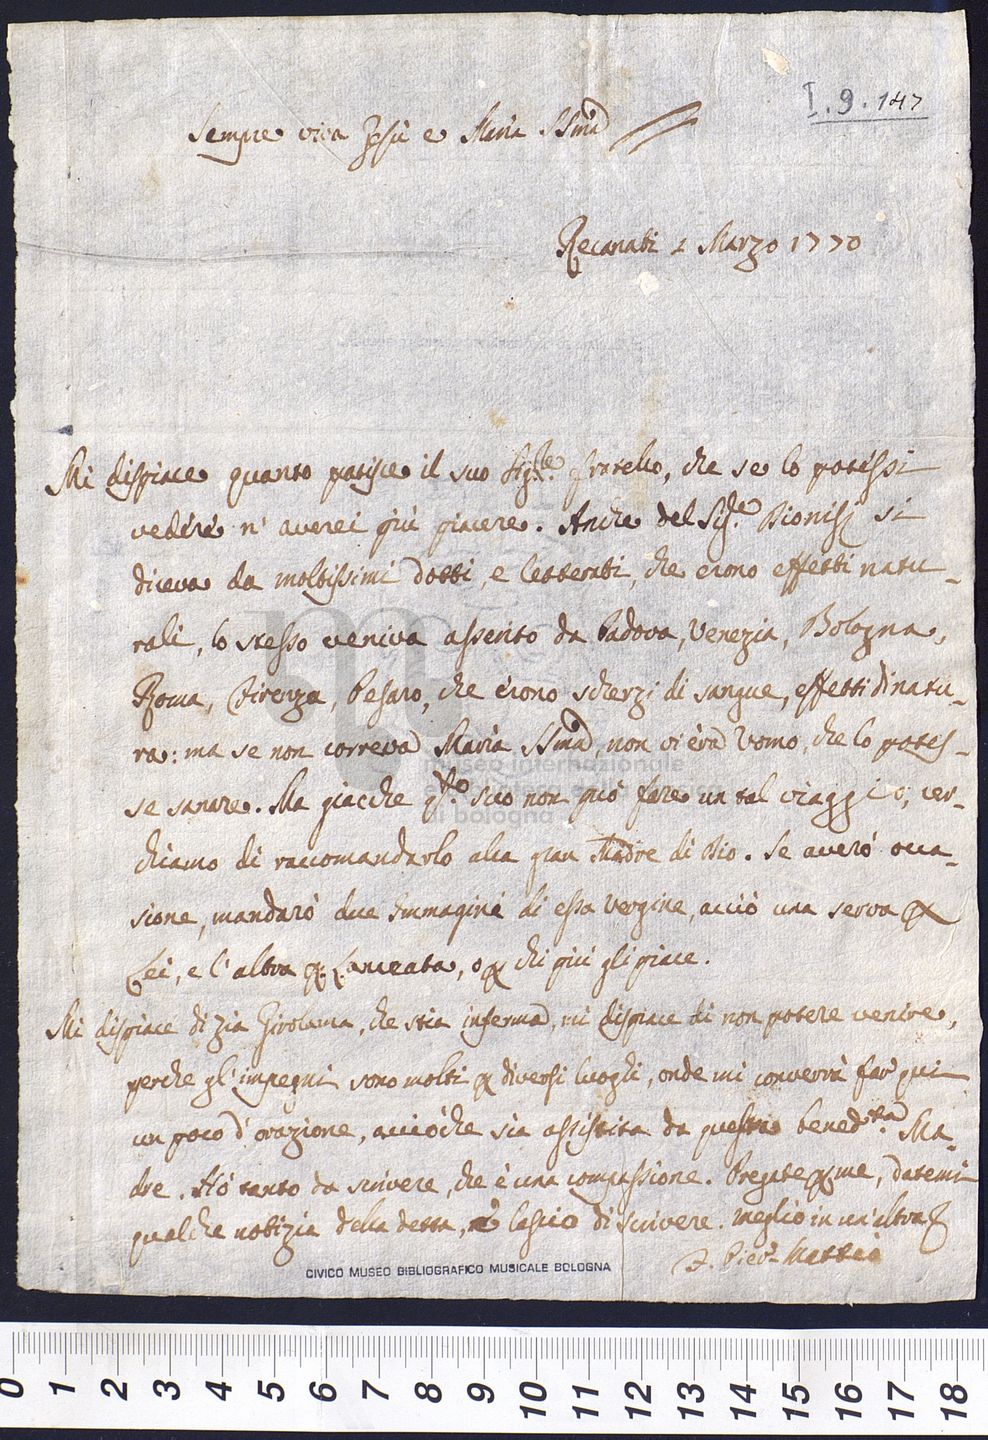 I. 9. 147
Sempre viva Gesù e Maria SSma
Recanati 2 Marzo 1770
Mi dispiace quanto patisce il suo Sigle. fratello, che se lo potessi
vedere n' averei più piacere. Anche del Sige. Dionisi si
diceva da moltissimi dotti, e letterati, che erono effetti natu-
rali, lo stesso veniva asserito da Padova, Venezia, Bologna,
Roma, Firenza, Pesaro, che erono scherzi di sangue, effetti di natu-
ra: ma se non correva Maria SSma, non vi era Uomo, che lo potes-
se sanare. Ma giacche qto. suo non può fare un tal viaggio, cer-
chiamo di raccomandarlo alla gran Madre di Dio. Se averò occa-
sione, mandarò due Immagini di essa Vergine, acciò una serva p
Lei, e l'altra p. , o p chi più gli piace.
Mi dispiace di zia Girolama, che stia inferma, mi dispiace di non potere venire,
perche gl'impegni sono molti p diversi luoghi, onde mi converrà far qui
un poco d'orazione, acciòche sia assistita da questa benedta. Ma-
dre. Hò tanto da scrivere, che è una compassione. Pregate p me, datemi
qualche notizia della detta, e lascio di scrivere. meglio in un'altra
F. Pier Mattia
museo internazionale
di bologna
CIVICO MUSEO BIBLIOGRAFICO MUSICALE BOLOGNA
0 1 2 3 4 5 6 7 8 9 10 11 12 13 14 15 16 17 18